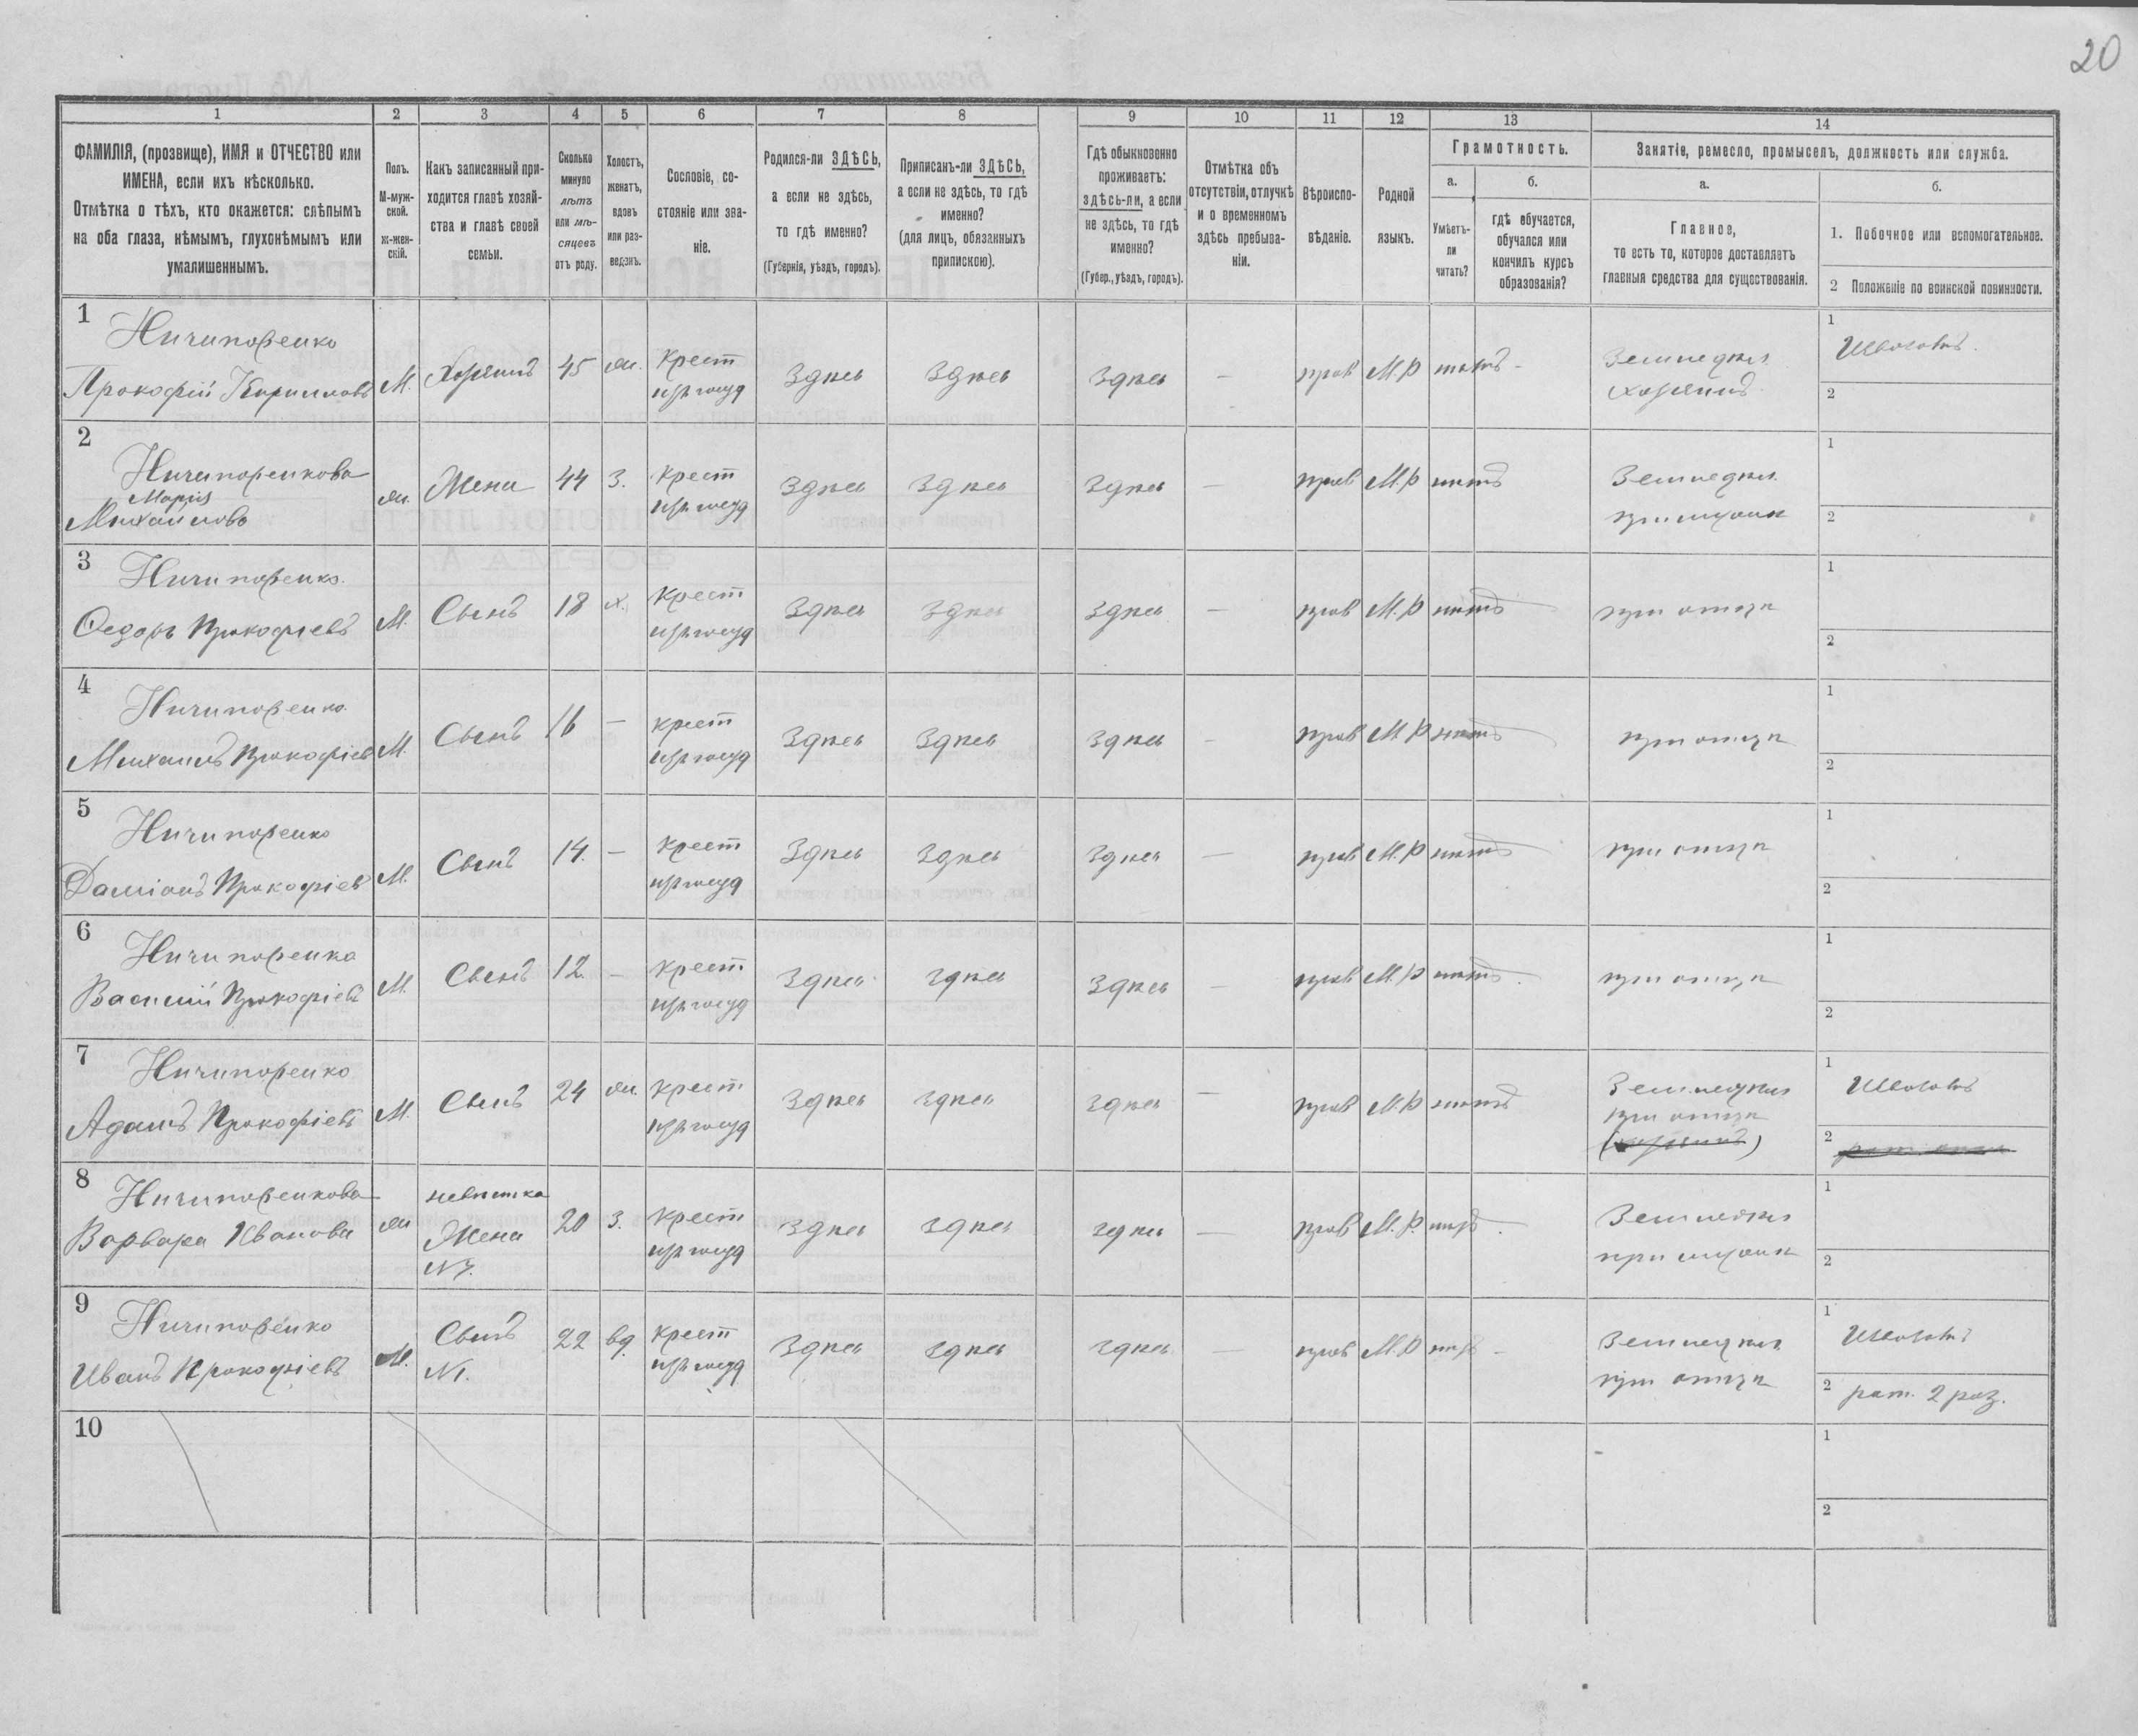 20
1 2 3 4 5 6 7 8 9 10 11 12 13 14
ФАМИЛІЯ, (прозвище), ИМЯ и ОТЧЕСТВО или
ИМЕНА, если ихъ нѣсколько.
Отмѣтка о тѣхъ, кто окажется: слѣпымъ
на оба глаза, нѣмымъ, глухонѣмымъ или
умалишеннымъ.
Полъ.
М-муж-
ской.
ж-жен-
скій.
Какъ записанный при-
ходится главѣ хозяй-
ства и главѣ своей
семьи.
Сколько
минуло
лѣтъ
или мѣ-
сяцевъ
отъ роду.
Холостъ,
женатъ,
вдовъ
или раз-
веденъ.
Сословіе, со-
стояніе или зва-
ніе.
Родился-ли ЗДѢСЬ,
а если не здѣсь,
то гдѣ именно?
(Губернія, уѣздъ, городъ).
Приписанъ-ли ЗДѢСЬ,
а если не здѣсь, то гдѣ
именно?
(для лицъ, обязанныхъ
припискою).
Гдѣ обыкновенно
проживаетъ:
здѣсь-ли, а если
не здѣсь, то гдѣ
именно?
(Губер., уѣздъ, городъ).
Отмѣтка объ
отсутствіи, отлучкѣ
и о временномъ
здѣсь пребыва-
ніи.
Вѣроиспо-
вѣданіе.
Родной
языкъ.
Грамотность.
а.
Умѣетъ-
ли
читать?
б.
гдѣ обучается,
обучался или
кончилъ курсъ
образованія?
Занятіе, ремесло, промыселъ, должность или служба.
а.
Главное,
то есть то, которое доставляетъ
главныя средства для существованія.
б.
1. Побочное или вспомогательное.
2 Положеніе по воинской повинности.
1
Ничипоренко
Прокофій Кириловъ М. Хозяинъ 45 жн. крест
из госуд
Здѣсь Здѣсь Здѣсь — прав М.Р нѣтъ -
Земледѣл.
хозяинъ
1
Извозъ
2
2
Ничипоренкова
Марія
Михайлова жн. Жена 44 З. крест
из госуд
Здѣсь Здѣсь Здѣсь — прав М.Р нѣтъ
Земледѣл.
при мужѣ
1
2
3
Ничипоренко
Федоръ Прокофіевъ М. Сынъ 18 х. крест
из госуд
Здѣсь Здѣсь Здѣсь — прав М.Р нѣтъ
при отцѣ
1
2
4
Ничипоренко
Михаилъ Прокофіев М. Сынъ 16 — крест
из госуд
Здѣсь Здѣсь Здѣсь — прав М.Р нѣтъ
при отцѣ
1
2
5
Ничипоренко
Даміанъ Прокофіев М. Сынъ 14. — крест
из госуд
Здѣсь Здѣсь Здѣсь — прав М.Р нѣтъ
при отцѣ
1
2
6
Ничипоренко
Василій Прокофіевъ М. Сынъ 12. — крест
из госуд
Здѣсь здѣсь Здѣсь — прав М.Р нѣтъ
при отцѣ
1
2
7
Ничипоренко
Адамъ Прокофіевъ М. Сынъ 24 жн. крест
из госуд
Здѣсь здѣсь здѣсь — прав М.Р нѣтъ
Земледѣл
при отцѣ
(хозяинъ)
1
Извозъ
2
8
Ничипоренкова
Варвара Иванова жн
невѣстка
Жена
N7.
20 З. крест
из госуд
Здѣсь здѣсь здѣсь — прав М.Р. нѣтъ
Земледѣл
при мужѣ
1
2
9
Ничипоренко
Иванъ Прокофіевъ М.
Сынъ
N1.
22 вд. крест
из госуд
Здѣсь здѣсь здѣсь — прав М.Р нѣтъ -
Земледѣл.
при отцѣ
1
Извозъ
2 рат. 2 раз.
10
1
2